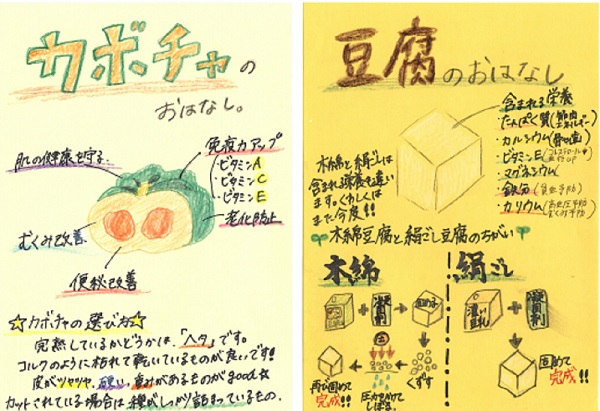 カボチャの
おはなし。
肌の健康を守る
免疫力アップ
・ビタミンA
・ビタミンC
・ビタミンE
老化防止
むくみ改善
便秘改善
☆カボチャの選び方☆
完熟しているかどうかは、「ヘタ」です。
コルクのように枯れて乾いているものが良いです!
皮がツヤツヤ、硬い、重みがあるものがgood☆
カットされている場合は種がしっかり詰まっているもの。
豆腐のおはなし
含まれる栄養
・たんぱく質
・カルシウム
・ビタミンE
・マグネシウム
・鉄分(貧血予防)
・カリウム
木綿と絹ごしは
含まれる栄養も違い
ます。くわしくは
また今度!!
木綿豆腐と絹ごし豆腐のちがい
木綿
絹ごし
豆乳
凝固剤
濃い豆乳
凝固剤
くずす
圧力をかけてしぼる
再び固めて
完成!!
固めて
完成!!